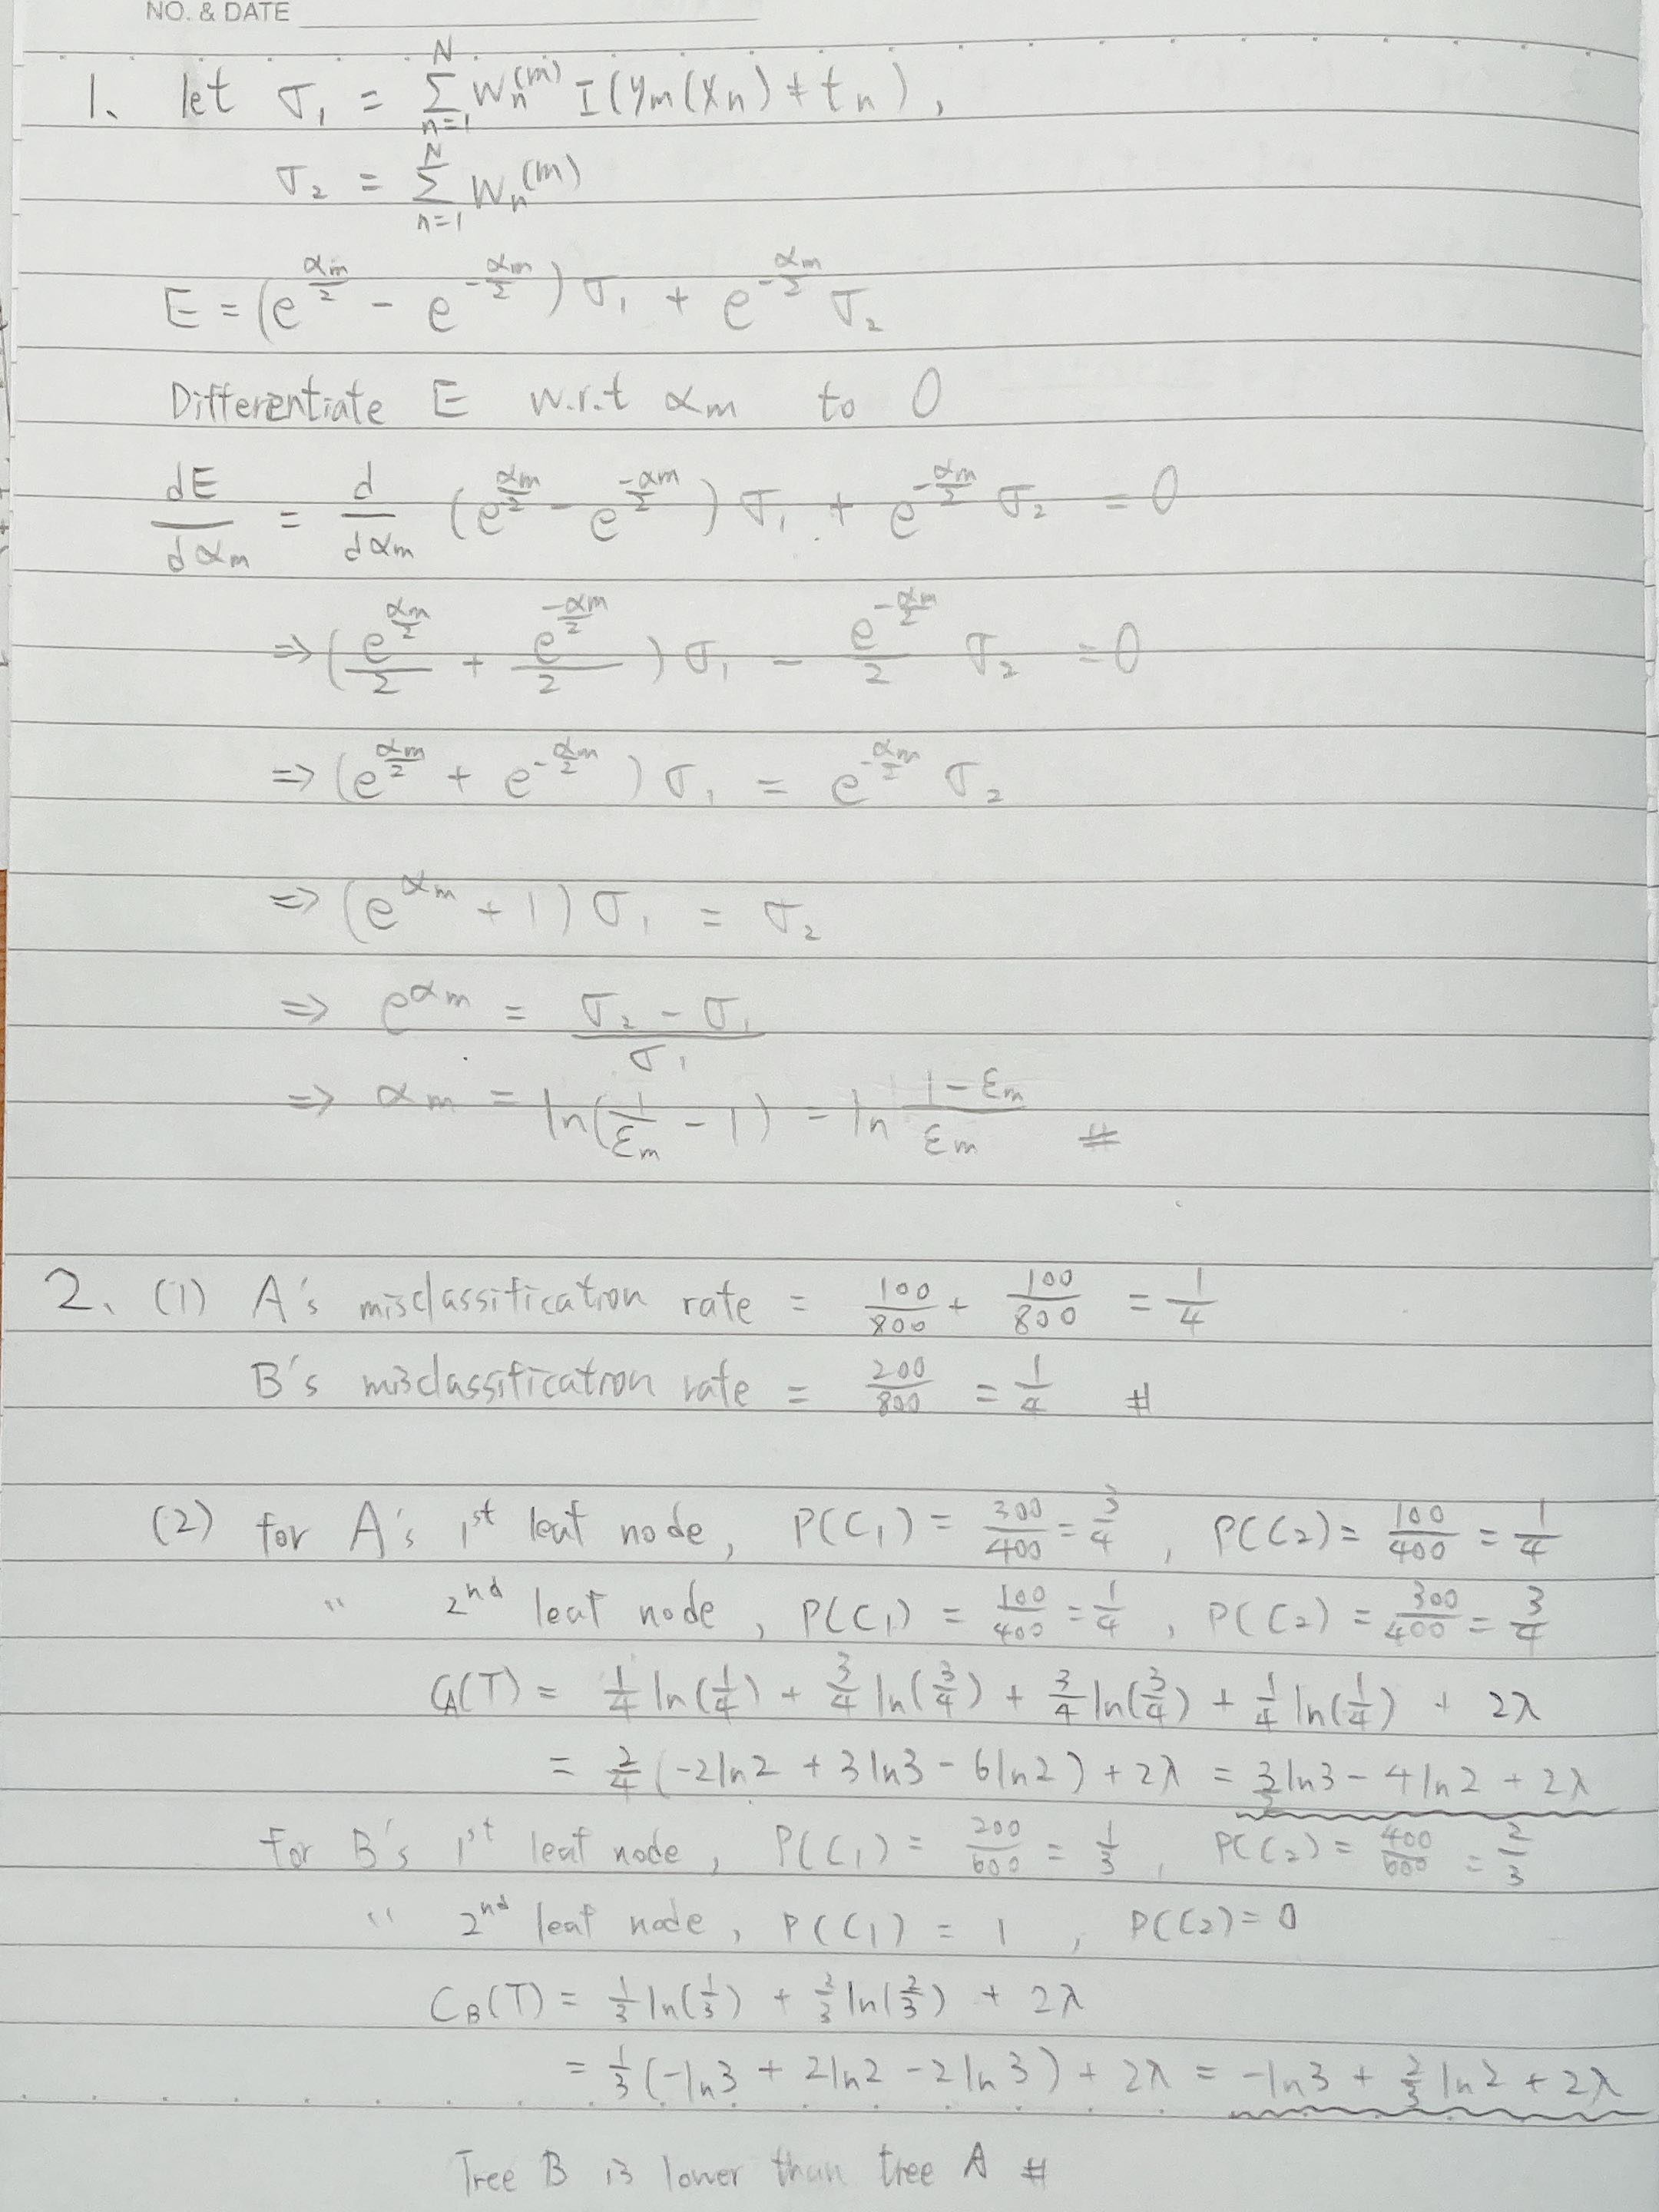 NO. & DATE
1. let σ₁ = Σ_{n=1}^{N} Wₙ^{(m)} I(yₘ(xₙ) ≠ tₙ),
σ₂ = Σ_{n=1}^{N} Wₙ^{(m)}
E = (e^{αm/2} - e^{-αm/2}) σ₁ + e^{-αm/2} σ₂
Differentiate E w.r.t αm to 0
dE/dαm = d/dαm (e^{αm/2} - e^{-αm/2}) σ₁ + e^{-αm/2} σ₂ = 0
⇒ (e^{αm/2}/2 + e^{-αm/2}/2) σ₁ - e^{-αm/2}/2 σ₂ = 0
⇒ (e^{αm/2} + e^{-αm/2}) σ₁ = e^{-αm/2} σ₂
⇒ (e^{αm} + 1) σ₁ = σ₂
⇒ e^{αm} = (σ₂ - σ₁)/σ₁
⇒ αm = ln(1/εm - 1) = ln (1-εm)/εm #
2. (1) A's misclassification rate = 100/800 + 100/800 = 1/4
B's misclassification rate = 200/800 = 1/4 #
(2) for A's 1st leaf node, P(C₁) = 300/400 = 3/4, P(C₂) = 100/400 = 1/4
" 2nd leaf node, P(C₁) = 100/400 = 1/4, P(C₂) = 300/400 = 3/4
C_A(T) = 1/4 ln(1/4) + 3/4 ln(3/4) + 3/4 ln(3/4) + 1/4 ln(1/4) + 2λ
= 2/4 (-2ln2 + 3ln3 - 6ln2) + 2λ = 3/2 ln3 - 4ln2 + 2λ
for B's 1st leaf node, P(C₁) = 200/600 = 1/3, P(C₂) = 400/600 = 2/3
" 2nd leaf node, P(C₁) = 1, P(C₂) = 0
C_B(T) = 1/3 ln(1/3) + 2/3 ln(2/3) + 2λ
= 1/3 (-ln3 + 2ln2 - 2ln3) + 2λ = -ln3 + 2/3 ln2 + 2λ
Tree B is lower than tree A #